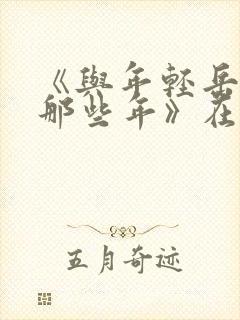 《與年輕岳
那些年》在
五月奇迹